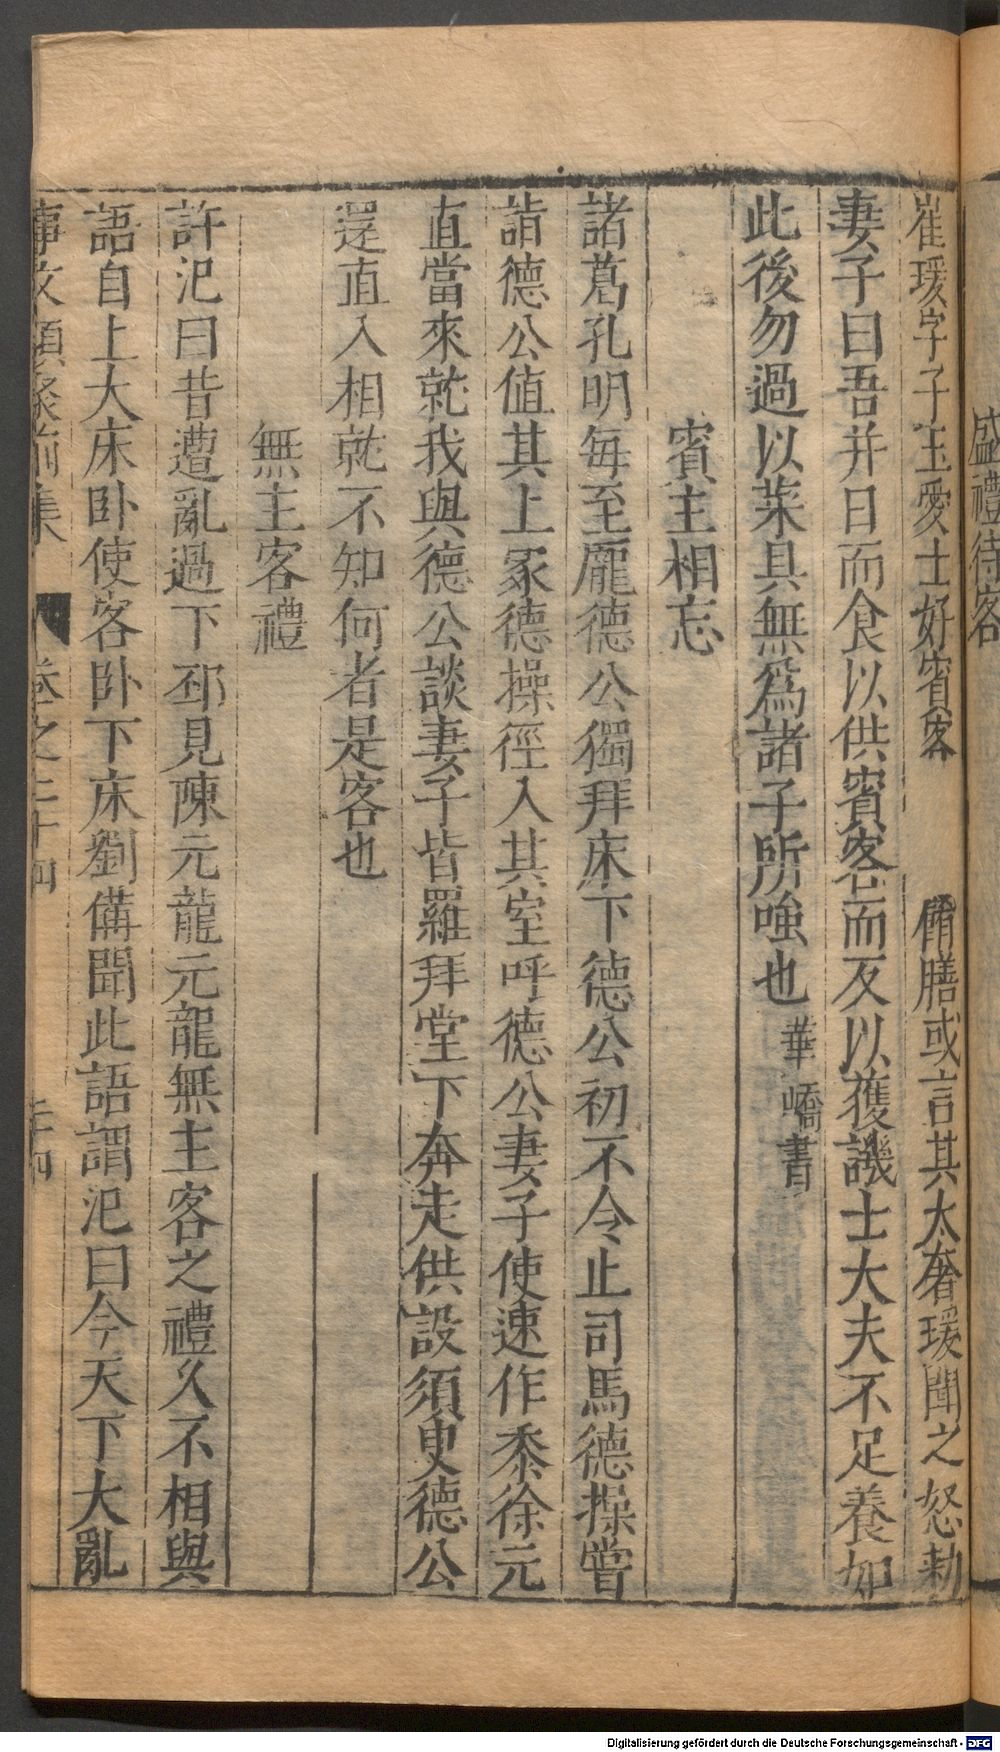 盛禮待客
崔瑗字子玉愛士好賓客 脩膳或言其太奢瑗聞之怒勑
妻子曰吾并日而食以供賓客而反以獲譏士大夫不足養如
此後勿過以菜具無爲諸子所嗤也華嶠書
賓主相忘
諸葛孔明每至龐德公獨拜床下德公初不令止司馬德操嘗
詣德公值其上冢德操徑入其室呼德公妻子使速作黍徐元
直當來就我與德公談妻子皆羅拜堂下奔走供設須臾德公
還直入相就不知何者是客也
無主客禮
許汜曰昔遭亂過下邳見陳元龍元龍無主客之禮久不相與
語自上大床卧使客卧下床劉備聞此語謂汜曰今天下大亂
事文類聚前集 卷之二十四 二十四
Digitalisierung gefördert durch die Deutsche Forschungsgemeinschaft - DFG